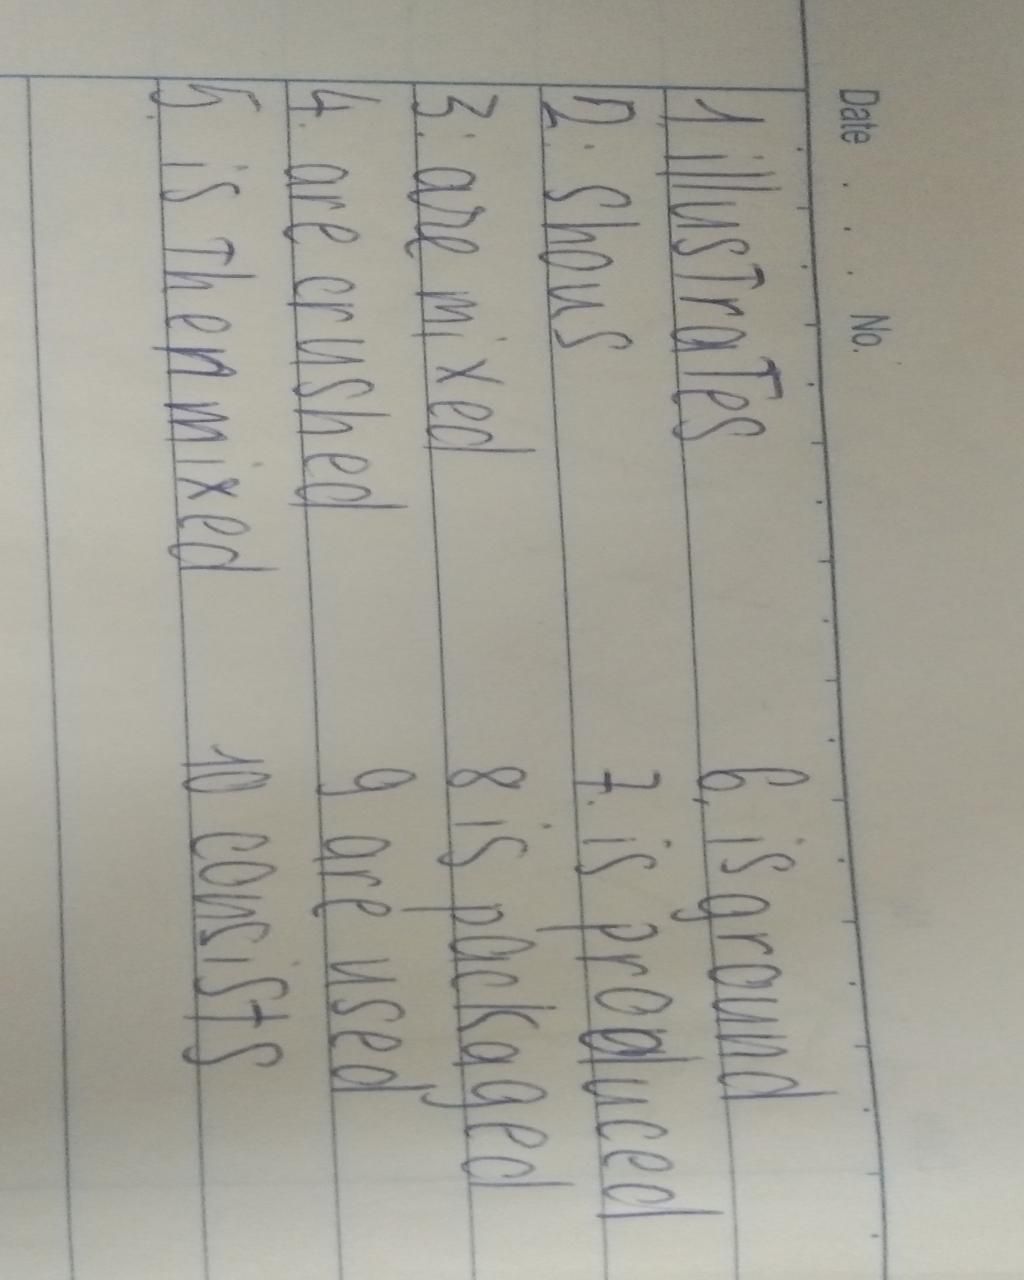 Date No.
1. illustrates 6. is ground
2. shous 7. is produced
3. are mixed 8 is packaged
4. are crushed 9 are used
5. is then mixed 10 consists